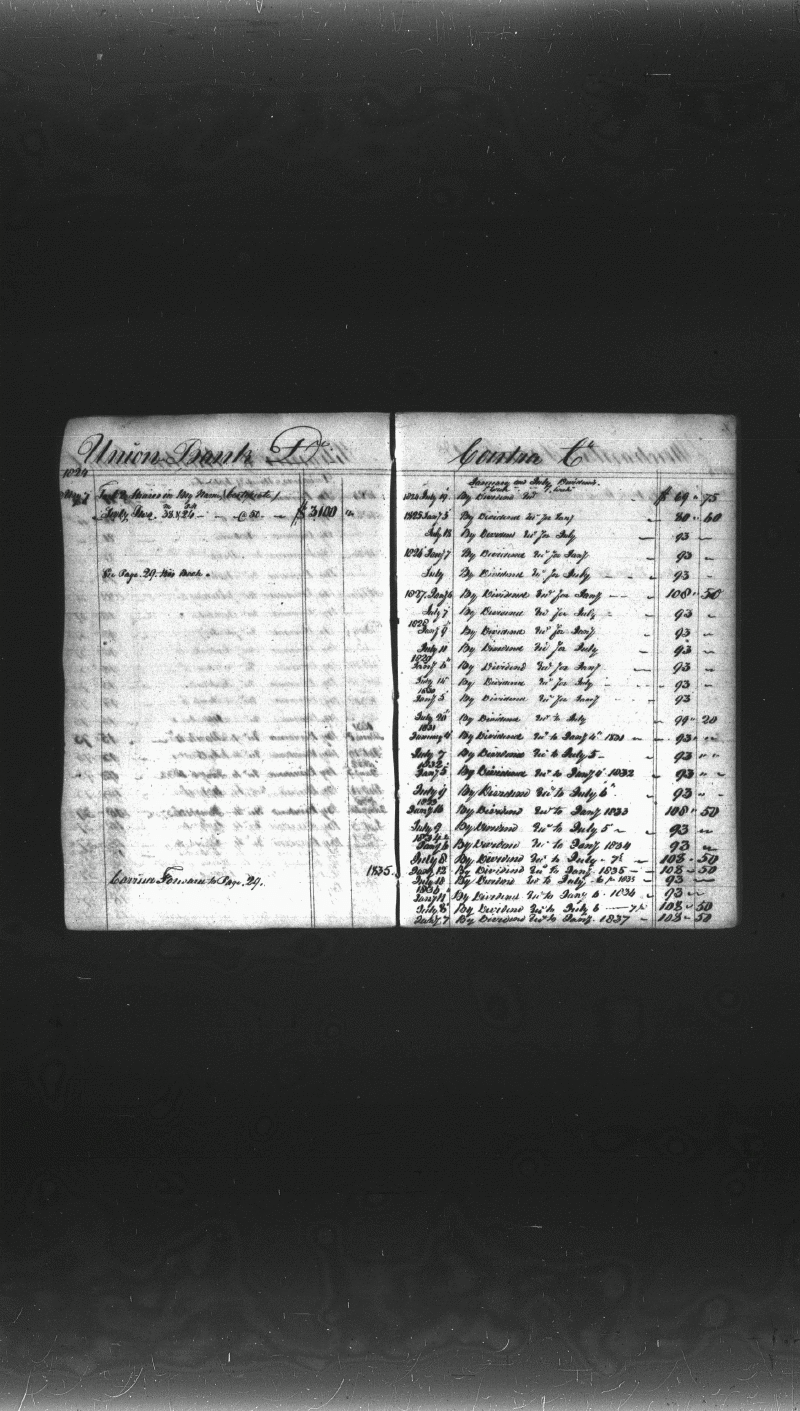 Union Bank Dr
1824
May 7 To 62 Shares in My Name, Certificate
Forty two 38 & 24 @ 50 $ 3100 "
See Page. 29. this Book.
Carried Forward to Page. 29.
Contra Cr
January and July Dividends.
1824 July 19 By Dividend Recd $ 69 " 75
1825 Jany 5 By Dividend Recd for Jany 80 " 60
July 18 By Dividend Recd for July 93 "
1826 Jany 7 By Dividend Recd for Jany 93 "
July By Dividend Recd for July 93 "
1827. Jany 6 By Dividend Recd for Jany 108 " 50
July 7 By Dividend Recd for July 93 "
1828
Jany 9 By Dividend Recd for Jany 93 "
July 11 By Dividend Recd for July 93 "
1829
Jany 6 By Dividend Recd for Jany 93 "
July 15 By Dividend Recd for July 93 "
1830
Jany 5 By Dividend Recd for Jany 93 "
July 20 By Dividend Recd to July 99 " 20
1831
January 4 By Dividend Recd to Jany 4th 1831 93 "
July 7 By Dividend Recd to July 5 93 "
1832
Jany 5 By Dividend Recd to Jany 4 1832 93 "
July 9 By Dividend Recd to July 6 93 "
1833
Jany 14 By Dividend Recd to Jany 1833 108 " 50
July 9 By Dividend Recd to July 5 93 "
1834
Jany 6 By Dividend Recd to Jany 1834 93 "
July 8 By Dividend Recd to July - 7 108 " 50
1835. Jany 12 By Dividend Recd to Jany. 1835 108 " 50
July 13 By Dividend Recd to July 1835 93 "
1836
Jany 11 By Dividend Recd to Jany 1836 93 "
July 8 By Dividend Recd to July 6 108 " 50
Jany 7 By Dividend Recd to Jany. 1837 108 " 50